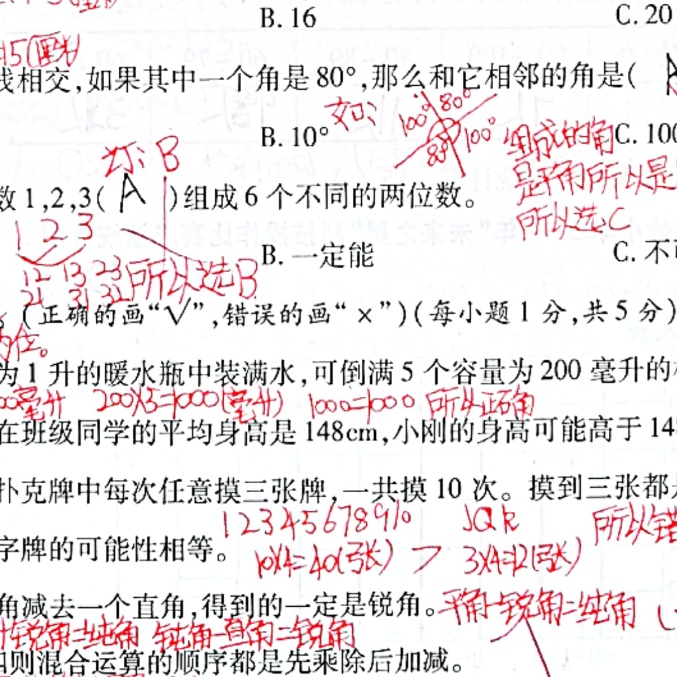 B. 16 C. 20
15(厘米)
线相交,如果其中一个角是80°,那么和它相邻的角是( A
B. 10° 如: 100° 80° 80° 100° 组成的角 C. 100
是平角所以是
所以选C
为: B
数1,2,3( A )组成6个不同的两位数。
1 2 3
B. 一定能 C. 不可
12 13 23 所以选B
21 31 32
。(正确的画“√”,错误的画“×”)(每小题1分,共5分)
位。
为1升的暖水瓶中装满水,可倒满5个容量为200毫升的
00毫升 200×5=1000(毫升) 1000=1000 所以正确
在班级同学的平均身高是148cm,小刚的身高可能高于14
扑克牌中每次任意摸三张牌,一共摸10次。摸到三张都
1 2 3 4 5 6 7 8 9 10 J Q K 所以错
字牌的可能性相等。
10×4=40(张) > 3×4=12(张)
角减去一个直角,得到的一定是锐角。 平角-锐角=钝角
锐角=钝角 钝角-直角=锐角
四则混合运算的顺序都是先乘除后加减。